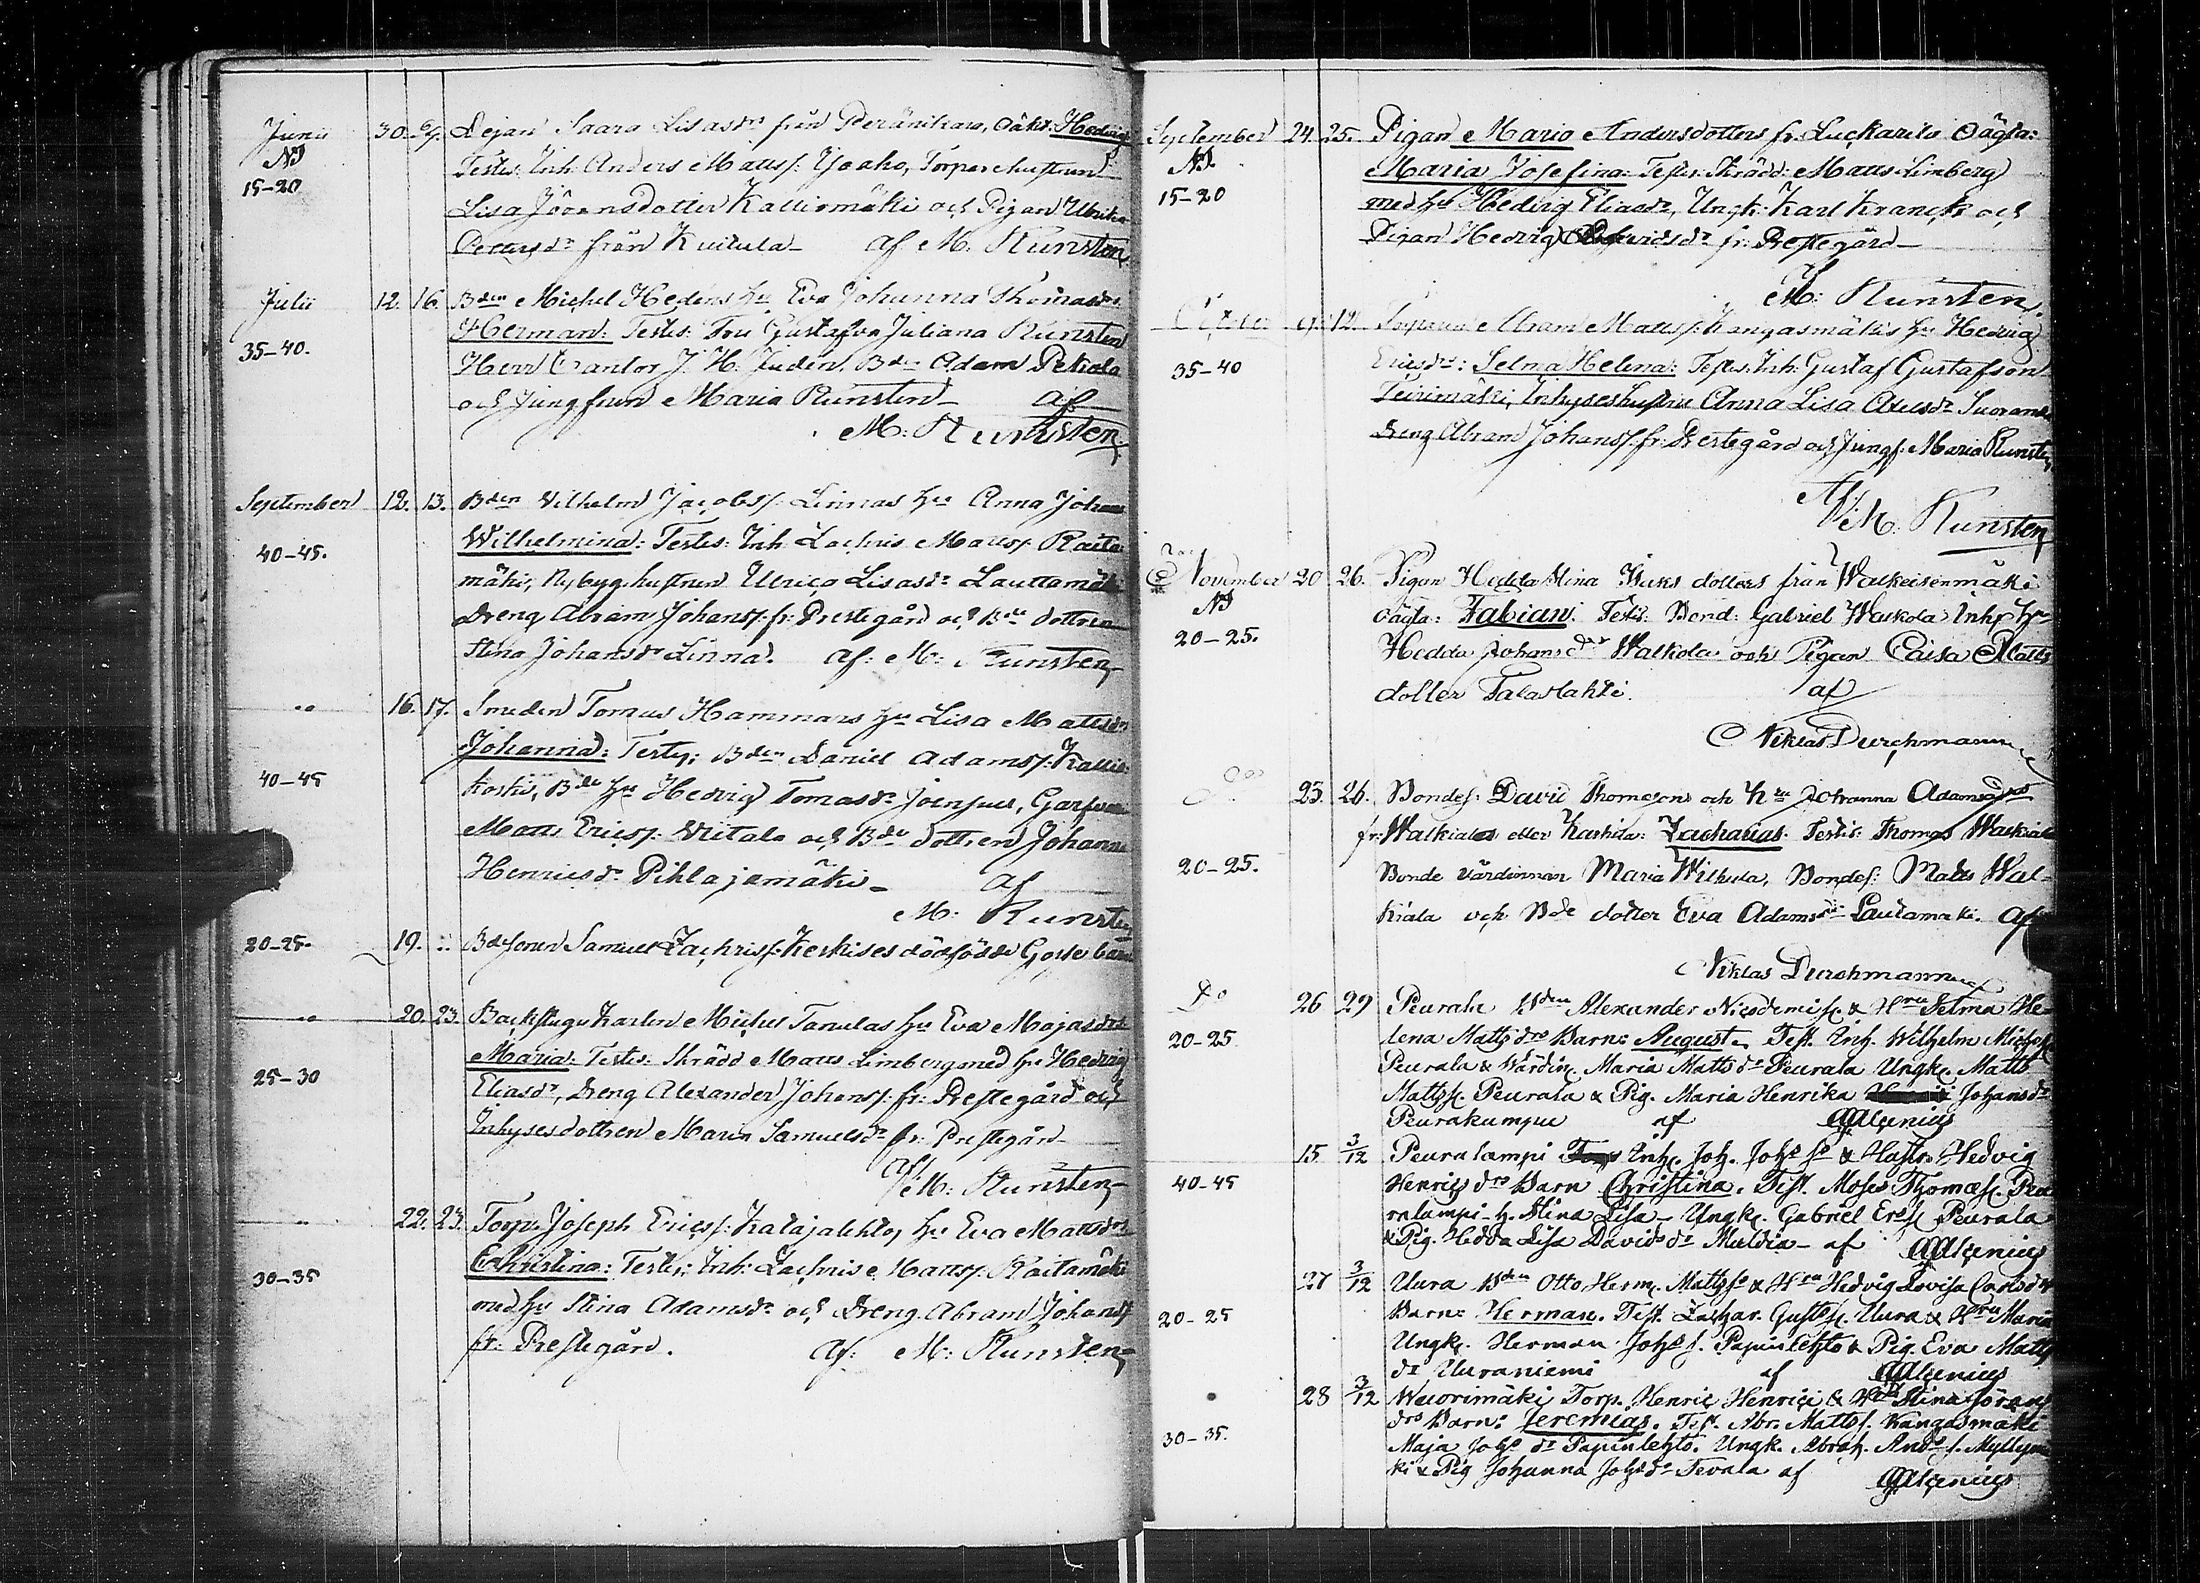 Junii 30. 9/7. Lejan Saara Lisasdr från Peränkara, oäkt. Hedvig
NB Testes: Inh: Anders Mattss: Yoaho, Torpare hustrun
15-20 Lisa Jöransdotter Kattirmäki och Pigan Ulrika
Pettersdr från Kuitula af M. Runsten
Julii 12. 16. Bden Michel Heders hu Eva Johanna Thomasdrs
Herman: Testes: Fru Gustafva Juliana Runsten
35-40. Herr Cantor J. H. Juden. Bden Adam Pekola
och Jungfrun Maria Runsten af
M: Runsten
September 12. 13. Bden Vilhelm Jacobss: Linnas hu Anna Johans
Wilhelmina: Testes: Inh: Zachris Mattss: Raita
40-45. mäki, Nybyg. hustrun Ulrica Lisasdr Lauttamäki
Dreng Abram Johanss: fr: Prestegård och Bde dottren
Stina Johansdr Linna. af: M: Runsten
16. 17. Smeden Tomas Hammars hu Lisa Mattsdrs
Johanna: Testes: Bden Daniel Adamss: Kallio
40-45 koski, Bde hu Hedvig Tomasdr Joensuu, Garfvare
Matts Ericss: Viitala och Bde dottren Johanna
Henricsdr Pihlajamäki af
M: Runsten
20-25. 19. Bdesonen Samuel Zachriss: Keskises dödfödde Gosse barn
20. 23. Backstugu Karlen Michel Tanulas hu Eva Majasdrs
Maria: Testes: Skrädd Matts Limberg med hu Hedvig
25-30 Eliasdr, Dreng Alexander Johanss: fr: Prestegård och
Inhyses dottren Maria Samuelsdr fr: Prestegård
af M: Runsten
22. 23. Torp: Joseph Ericss: Katajalehto, hu Eva Mattsdrs
Christina: Testes: Inh: Zachris Mattss: Raitamäki
30-35 med hu Stina Adamsdr och Dreng Abram Johanss
fr: Prestegård. af: M: Runsten
September 24. 25. Pigan Maria Andersdotters fr. Luckarila Oägta:
NB. Maria Josefina: Testes: Skrädd: Matts Limberg
15-20 med hu Hedvig Eliasdr, Ungk: Karl Kranck och
Pigan Hedvig Davidsdr fr: Prestegård
M: Runsten
9. 12. Abram Mattss: Kangasmäkis hu Hedvig
Ericsdrs: Selma Helena: Testes: Inh: Gustaf Gustafson
35-40 Leirimäki, Inhyseshustru Anna Lisa Axelsdr Suorans
dreng Abram Johanss: fr: Prestegård och Jungf: Maria Runsten
Af M: Runsten
November 20 26. Pigan Hedda Stina dotters från Walkeisenmäki
NB oägta: Fabian. Testis: Bond: Gabriel Waskola Inhs Hu
20-25. Hedda Johansdr Walkola och Pigan Caisa Matts
dotter Talaslahti. af
Niklas Durchmann
25. 26. Bondes: David Thomeson och hu Johanna Adamsdrs
fr: Walkiala eller Karhila: Zacharias. Testis: Thomas Walkiala
20-25. Bonde värdinnan Maria Wilhula, Bondes: Matts Wal-
kiala och Bde dotter Eva Adamsdr Lautamäki. af
Niklas Durchmann
Do 26 29 Peurala Bden Alexander Nicodemiss. & Hru Selma He-
20-25 lena Matts drs Barn: August. Test. Inh. Wilhelm Michels
Peurala & Värdin. Maria Matts dr Peurala Ungk. Matts
Mattss. Peurala & Pig. Maria Henrika Johansdr
Peurakumpu af Alcenius
15 3/12 Peuralampi Inh. Joh. Johs so & Hustr. Hedvig
40-45 Henrics drs Barn Christina. Test. Moses Thomæs. Peu
ralampi h. Stina Lisa Ungk. Gabriel Ers. Peurala
& Pig. Hedda Lisa Davids dr Muldia af Alcenius
27 3/12 Uura Bden Otto Herm. Mattsso & Hru Hedvig Lovisa Carlsdrs
20-25 Barn: Herman. Test. Zachar. Gustss. Uura & Hru Maria
Ungk. Herman Johs s. Papinlehto & Pig. Eva Matts
dr Uuraniemi af Alcenius
28 3/12 Wuorimäki Torp. Henric Henrici & Hu Stina Jörans
drs Barn: Jeremias. Test. Abr. Mattss. Kangasmäki
30-35. Maja Johs dr Papinlehto. Ungk. Abrah. Ands s. Myllymä
ki & Pig Johanna Johsdr Tevala af Alcenius